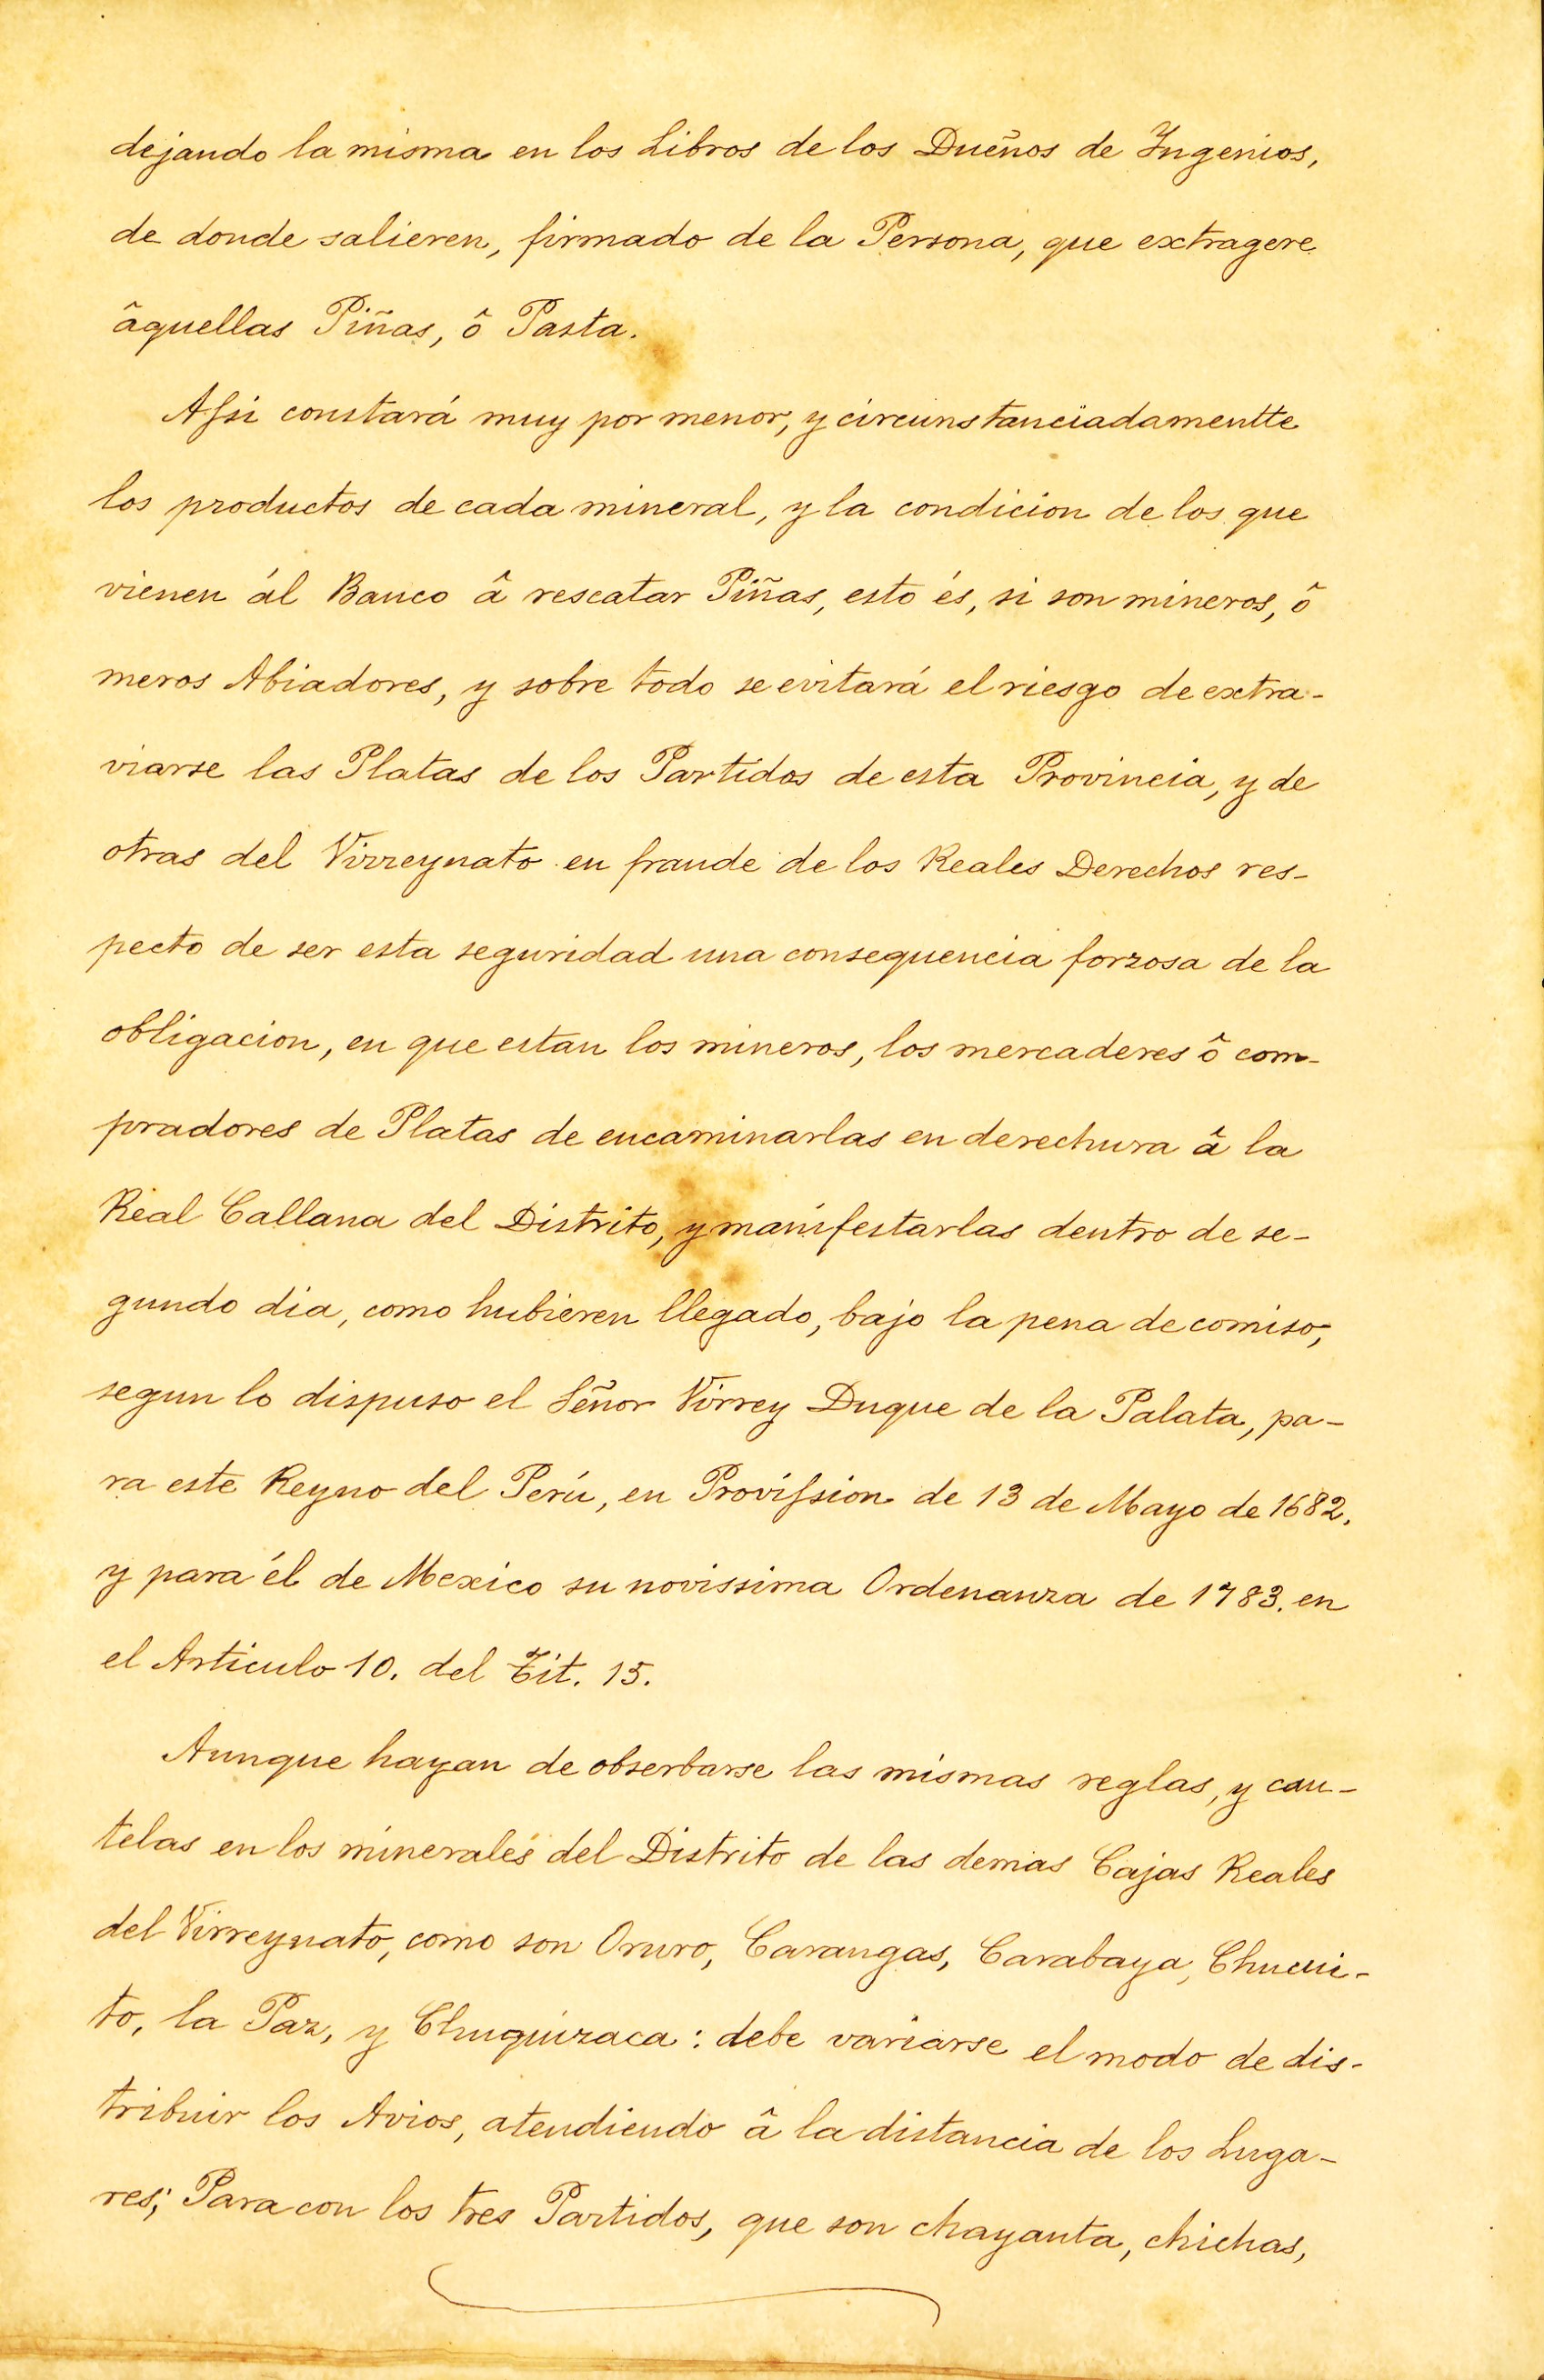 dejando la misma en los Libros de los Dueños de Ingenios,
de donde salieren, firmado de la Persona, que extragere
âquellas Piñas, ô Pasta.
Assi constará muy por menor, y circunstanciadamentte
los productos de cada mineral, y la condicion de los que
vienen ál Banco â rescatar Piñas, esto és, si son mineros, ô
meros Abiadores, y sobre todo se evitará el riesgo de extra-
viarse las Platas de los Partidos de esta Provincia, y de
otras del Virreynato en fraude de los Reales Derechos res-
pecto de ser esta seguridad una consequencia forzosa de la
obligacion, en que estan los mineros, los mercaderes ô com-
pradores de Platas de encaminarlas en derechura â la
Real Callana del Distrito, y manifestarlas dentro de se-
gundo dia, como hubieren llegado, bajo la pena de comiso,
segun lo dispuso el Señor Virrey Duque de la Palata, pa-
ra este Reyno del Perú, en Provission de 13 de Mayo de 1682.
y para él de Mexico su novissima Ordenanza de 1783. en
el Articulo 10. del Tit. 15.
Aunque hayan de obserbarse las mismas reglas, y cau-
telas en los minerales del Distrito de las demas Cajas Reales
del Virreynato, como son Oruro, Carangas, Carabaya, Chucui-
to, la Paz, y Chuquizaca: debe variarse el modo de dis-
tribuir los Avios, atendiendo â la distancia de los Luga-
res; Para con los tres Partidos, que son chayanta, chichas,